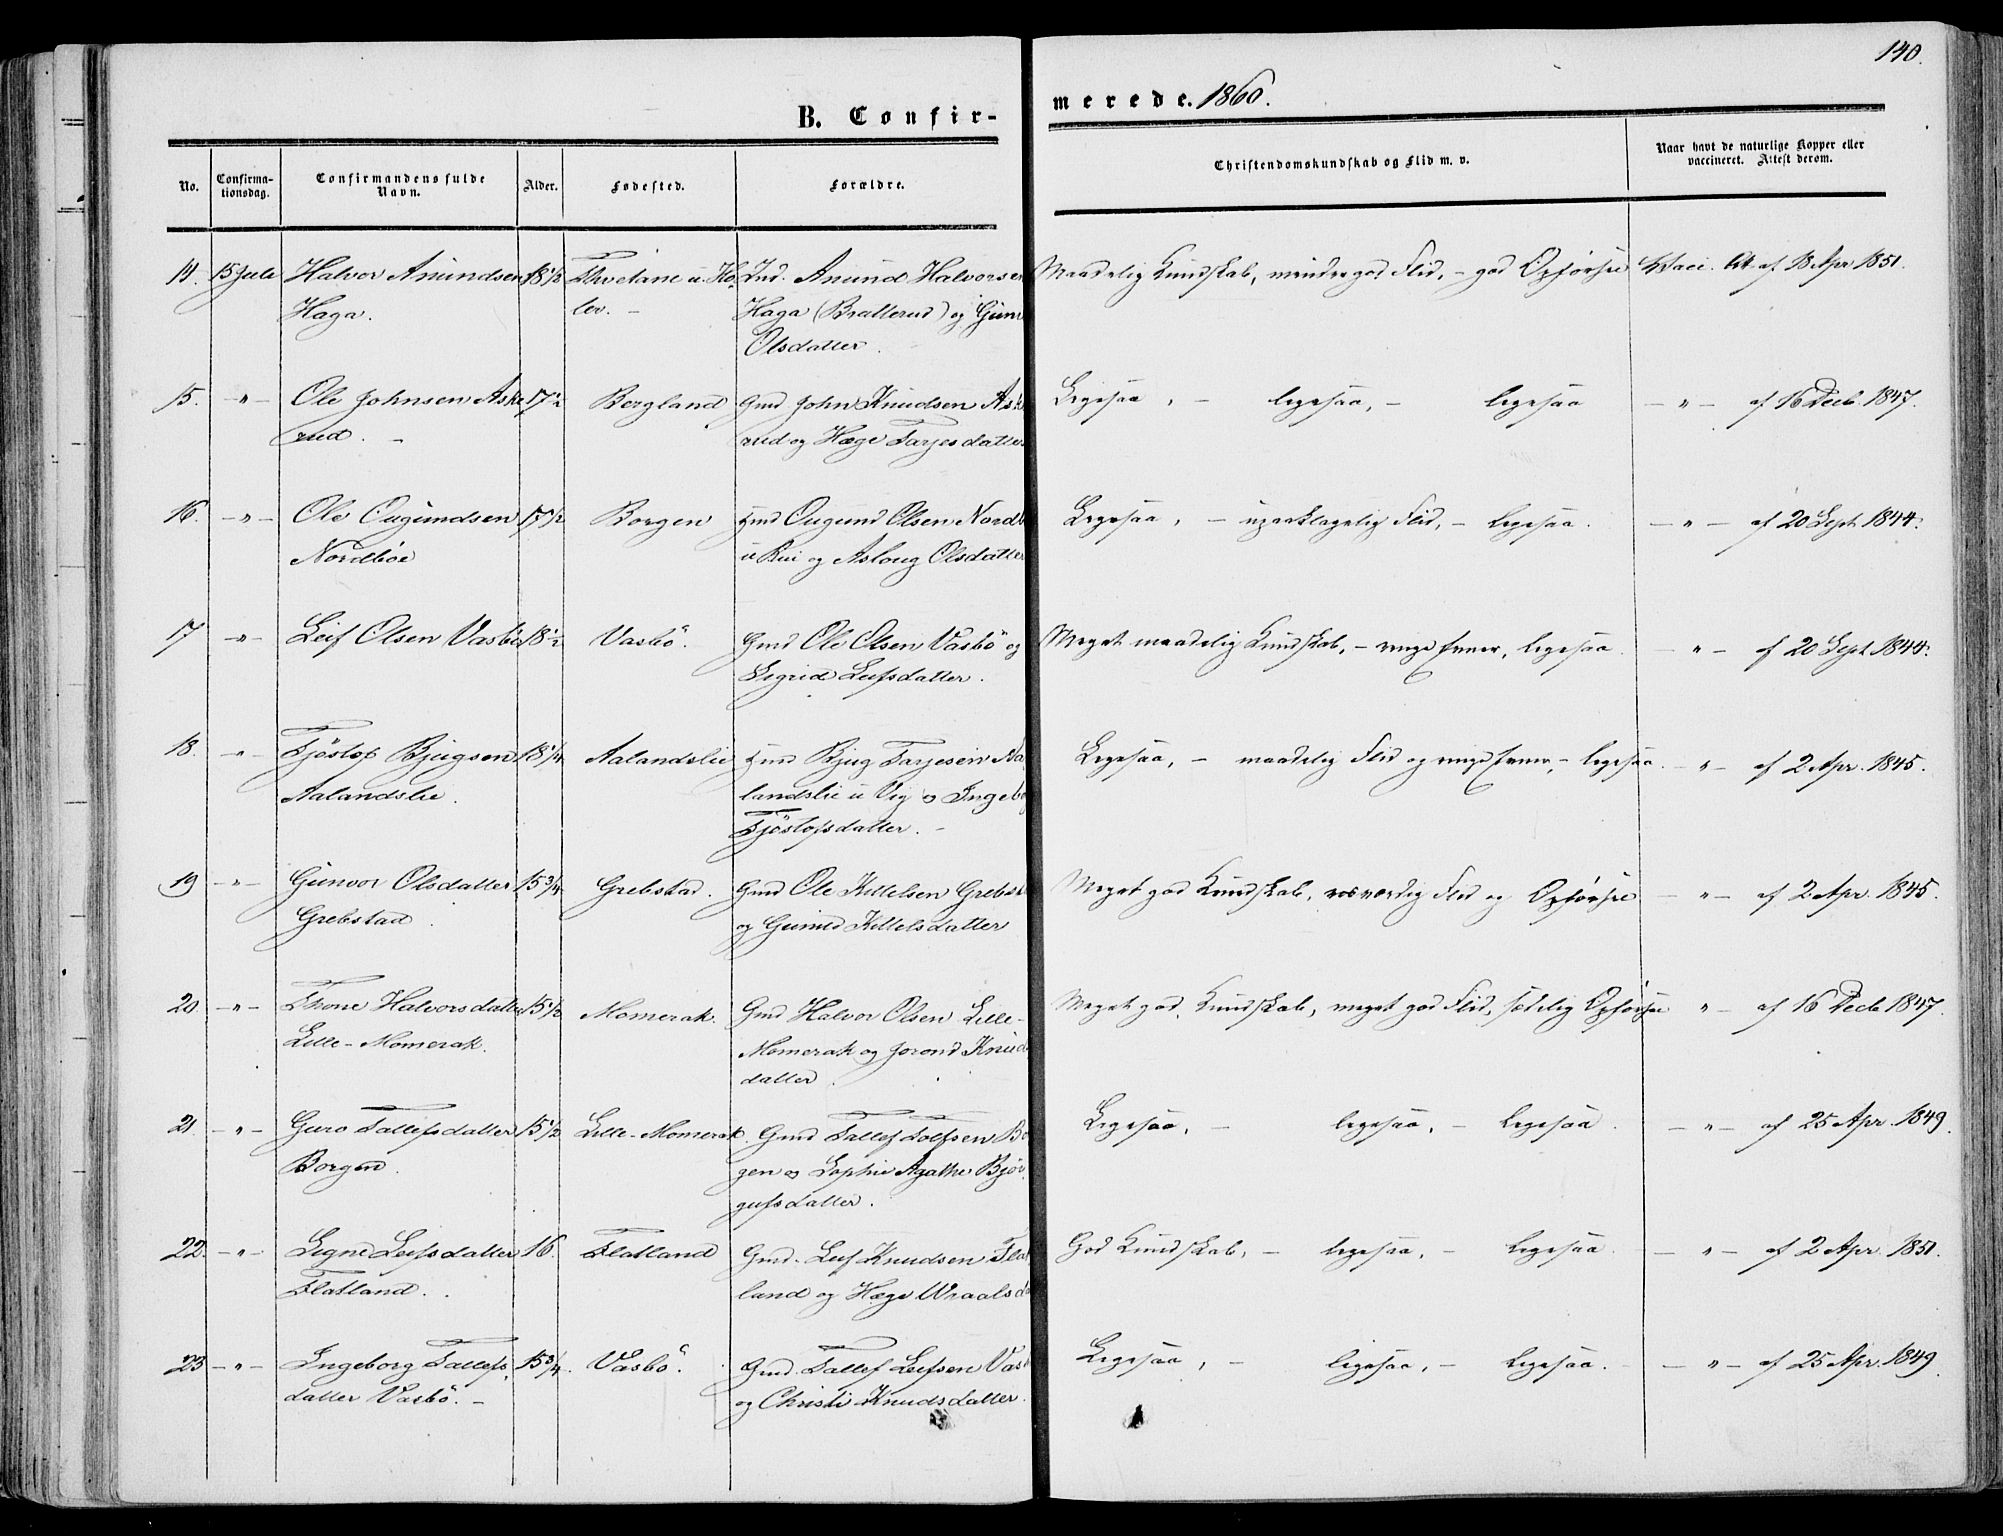 140.
B. Confir-
merede. 1860.
No.
Confirma-
tionsdag.
Confirmandens fulde
Navn.
Alder.
Fødested.
Forældre.
Christendomskundskab og Flid m. v.
Naar havt de naturlige Kopper eller
vaccineret. Attest derom.
14. 15 Jule Halvor Anundsen 18 1/2 Thvetane u. Ho Ind. Anund Halvorsen Maadelig Kundskab, mindre god Flid, - god Opførsel Vacc. Att. af 18 Apr 1851.
Haga. ler. - Haga (Bratterud) og Gun
Olsdatter.
15. -"- Ole Johnsen Aske 17 1/2 Bergland Gmd John Knudsen Ask Ligesaa, - ligesaa, - ligesaa -"- af 16 Decb. 1847.
rud. - rud og Hæge Tarjesdatter
16. -"- Ole Ougundsen 17 1/2 Borgen Hmd Ougund Olsen Nordb Ligesaa, - upaaklagelig Flid, - ligesaa. -"- af 20 Sept 1844.
Nordbøe u Rui og Asloug Olsdatter
17 -"- Leif Olsen Vasbö 18 1/2 Vasbö. Gmd Ole Olsen Vasbö og Meget maadelig Kundskab, - ringe Evner, ligesaa. -"- af 20 Sept 1844.
Sigrid Leifsdatter.
18. -"- Tjöstof Bjugsen 18 1/4 Aalandslie Hmd Bjug Tarjesen Aa Ligesaa, - maadelig Flid og ringe Evner, - ligesaa. -"- af 2 Apr. 1845.
Aalandslie. landslie u Vig og Ingeb
Tjöstofsdatter. -
19 -"- Gunvor Olsdatter 15 3/4 Grebstad. Gmd Ole Kittelsen Grebst Meget god Kundskab, rosværdig Flid og Opførsel -"- af 2 Apr. 1845.
Grebstad. og Gunild Kittelsdatter
20. -"- Thone Halvorsdatter 15 1/2 Momerak. Gmd Halvor Olsen Lille- Meget god Kundskab, meget god Flid, sædelig Opførsel " - af 16 Decb 1847.
Lille-Momerak. Momerak og Jorond Knud
datter.
21. -"- Guro Tallefsdatter 15 1/2 Lille-Momerak. Gmd Tallef Tolfsen Bo Ligesaa, - ligesaa, - ligesaa. -"- af 25 Apr. 1849.
Borgen. gen og Sophie Agathe Bjør
gufsdatter.
22. -"- Signe Leifsdatter 16. Flatland Gmd. Leif Knudsen Flat God Kundskab, - ligesaa, - ligesaa. -"- af 2 Apr. 1851.
Flatland. land og Hæge Wraalsd
23 -"- Ingeborg Tallefs 15 3/4. Vasbö. Gmd. Tallef Leifsen Vasb Ligesaa, - ligesaa, - ligesaa. - -"- af 25 Apr. 1849.
datter Vasbö. - og Christi Knudsdatter.